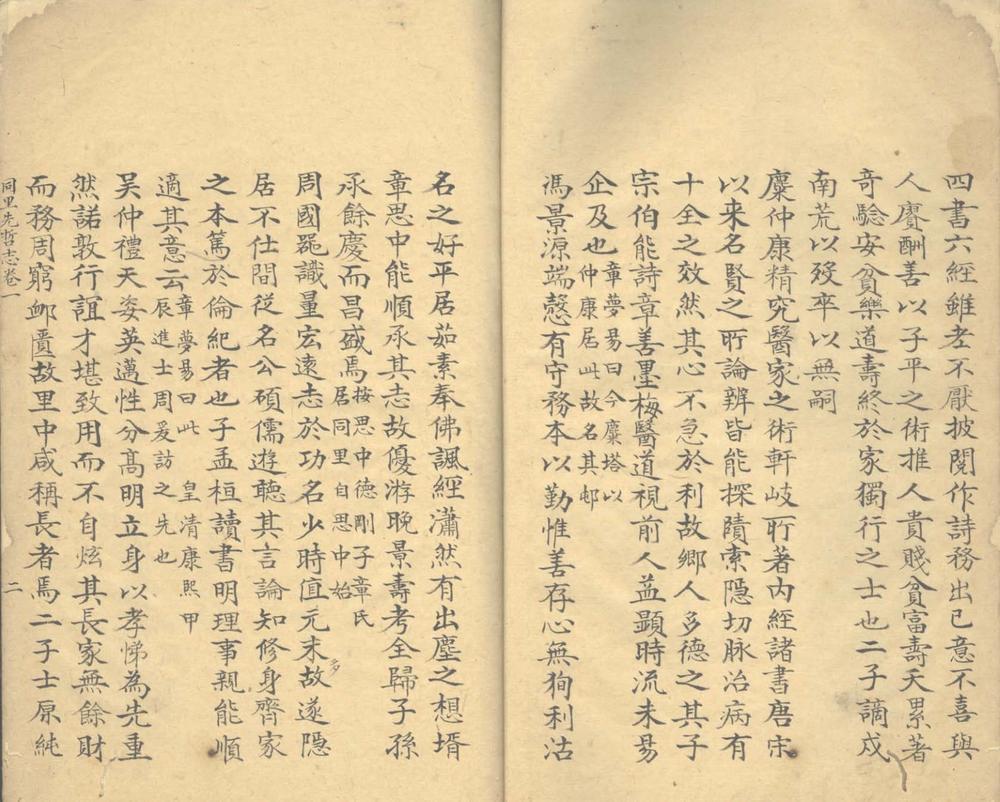 四書六經雖老不厭披閱作詩務出己意不喜與
人賡酬善以子平之術推人貴賤貧富壽夭累著
奇驗安貧樂道壽終於家獨行之士也二子謫戍
南荒以歿卒以無嗣
糜仲康精究醫家之術軒岐所著內經諸書唐宋
以来名賢之所論辨皆能探賾索隱切脉治病有
十全之效然其心不急於利故鄉人多德之其子
宗伯能詩章善墨梅醫道視前人益顯時流未易
企及也章夢易曰今糜塔以仲康居此故名其邨
馮景源端慤有守務本以勤惟善存心無狥利沽
名之好平居茹素奉佛諷經瀟然有出塵之想壻
章思中能順承其志故優游晚景壽考全歸子孫
承餘慶而昌盛焉按思中德剛子章氏居同里自思中始
周國器識量宏遠志於功名少時值元末多故遂隱
居不仕間從名公碩儒遊聽其言論知修身齊家
之本篤於倫紀者也子孟桓讀書明理事親能順
適其意云章夢易曰此皇清康熙甲辰進士周爰訪之先也
吴仲禮天姿英邁性分高明立身以孝悌為先重
然諾敦行誼才堪致用而不自炫其長家無餘財
而務周窮卹匱故里中咸稱長者焉二子士原純
同里先哲志卷一 二